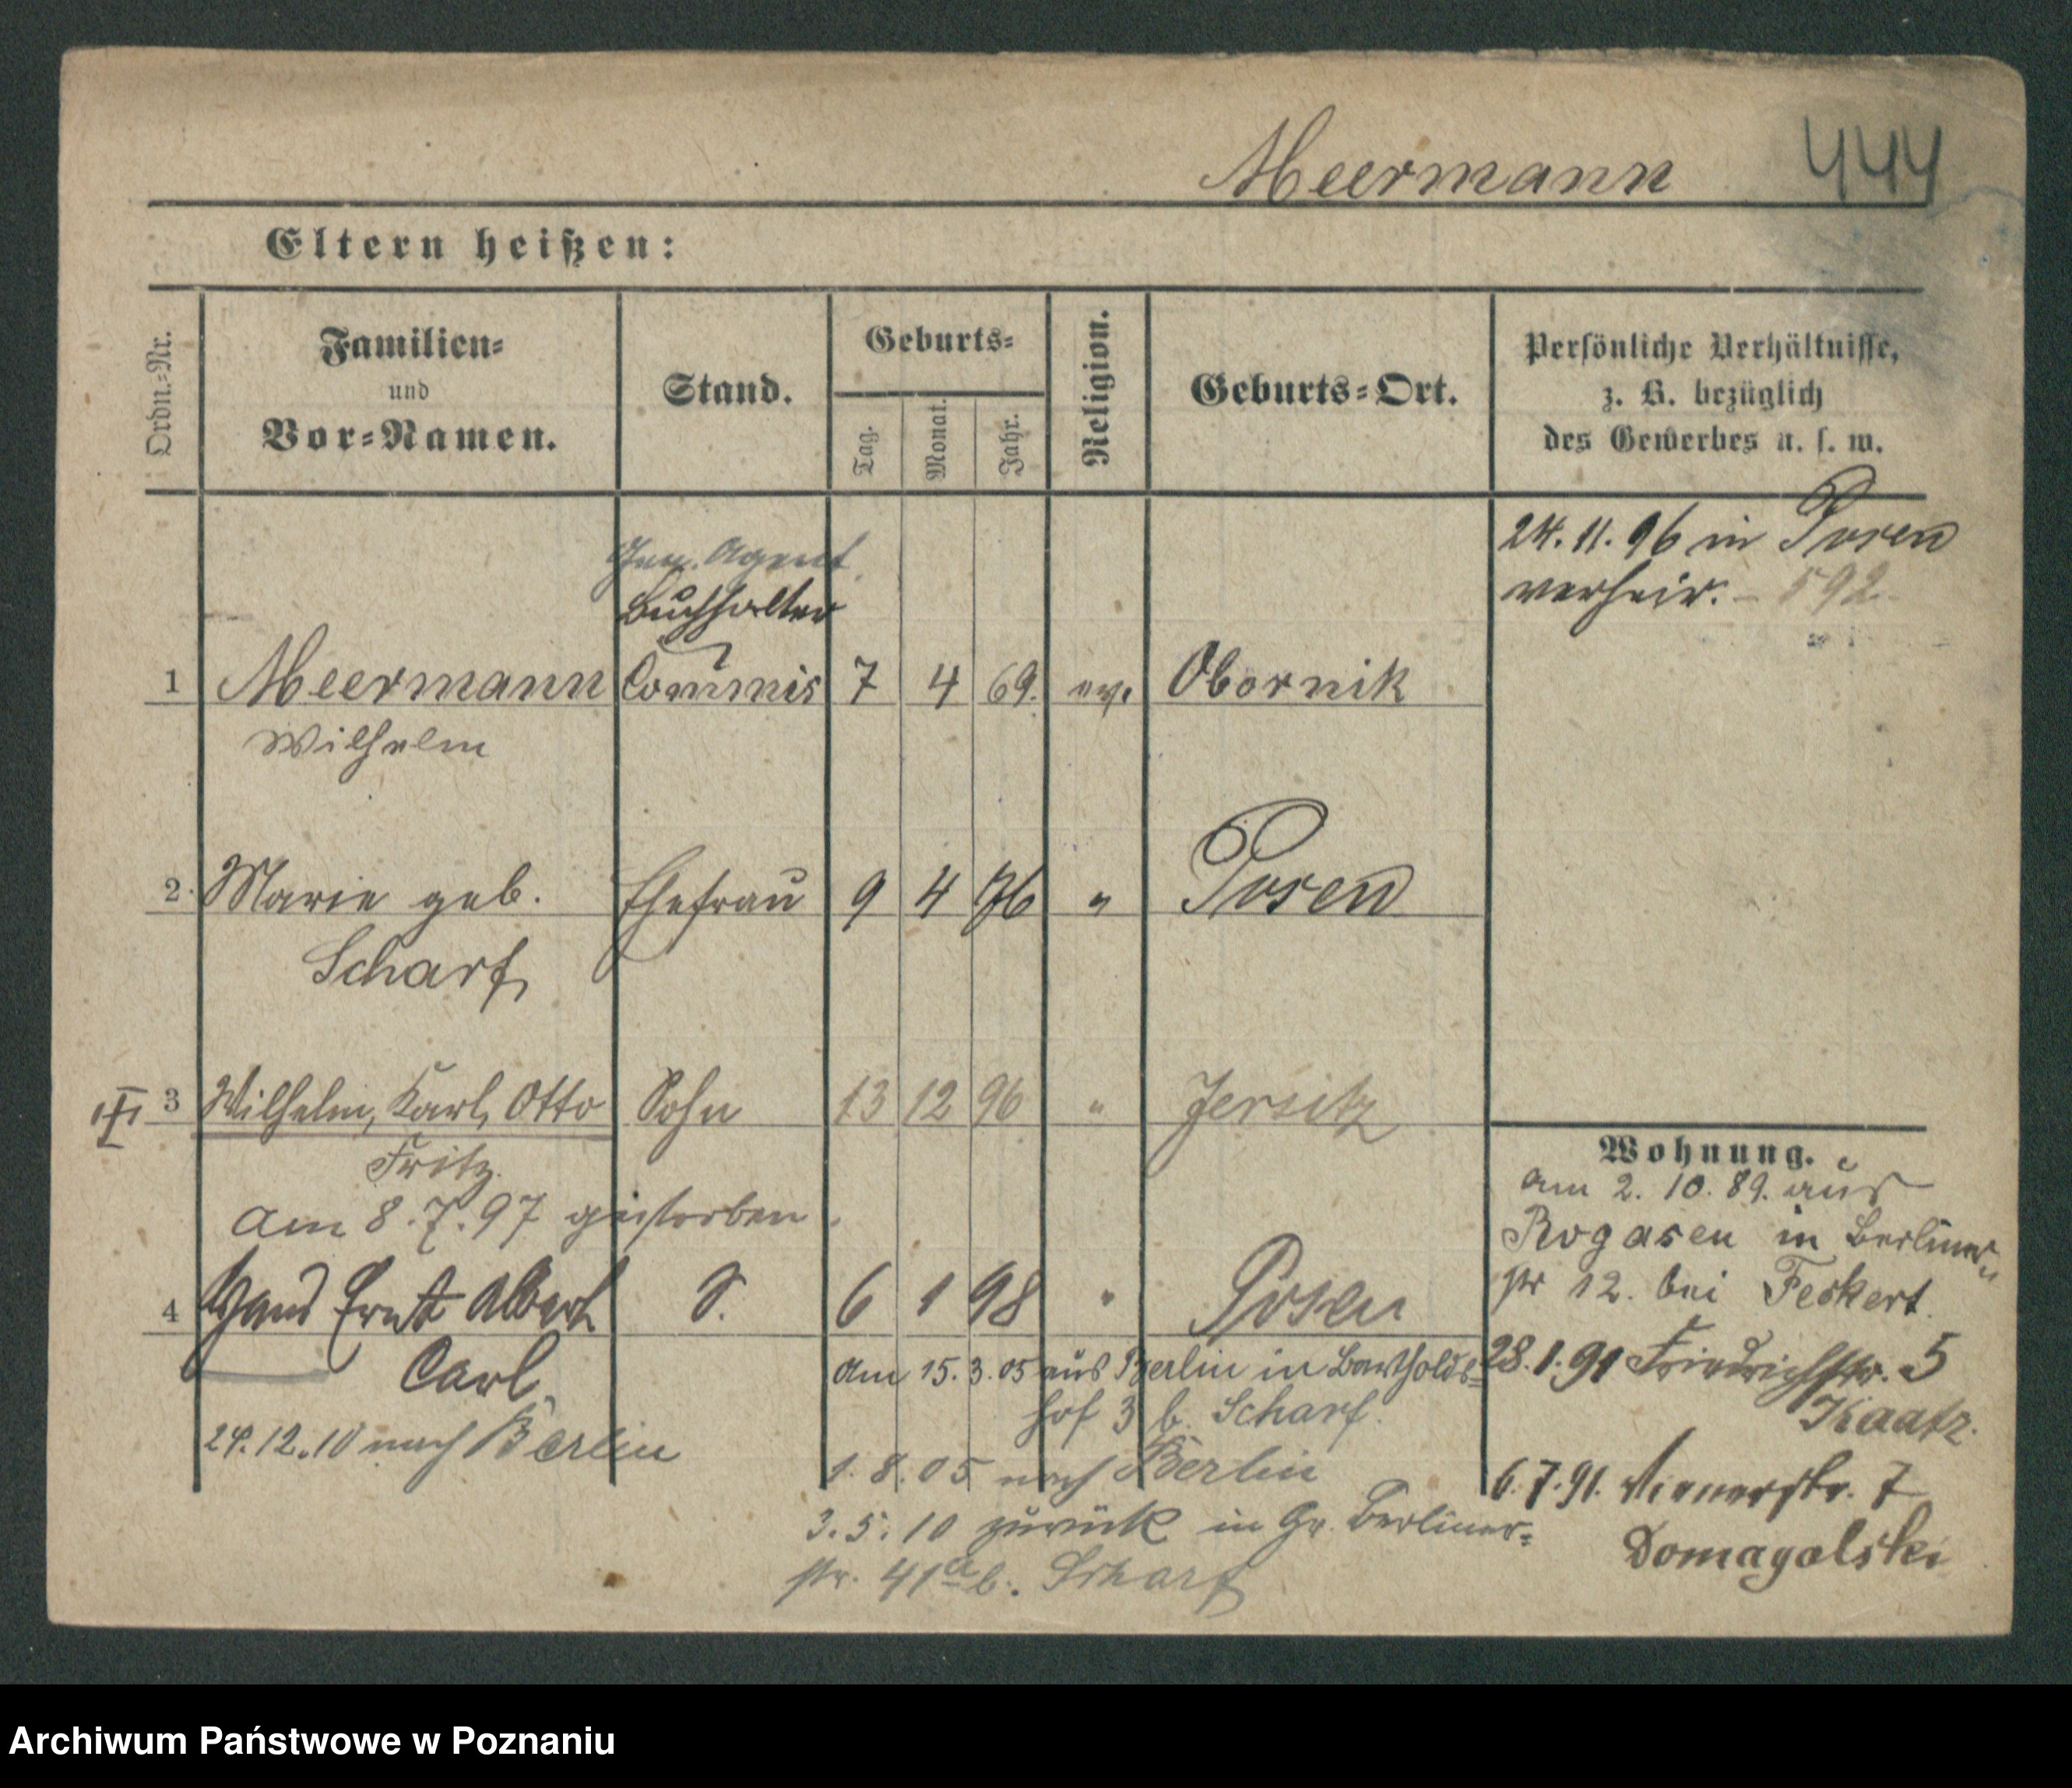 Meermann 444
Eltern heißen:
Ordn.-Nr.
Familien-
und
Vor-Namen.
Stand.
Geburts-
Tag.
Monat.
Jahr.
Religion.
Geburts-Ort.
Persönliche Verhältnisse,
z. B. bezüglich
des Gewerbes u. s. w.
24. 11. 96 in Posen
verheir. – 592.
Gen. Agent.
Buchhalter
1 Meermann Commis 7 4 69. ev. Obornik
Wilhelm
2 Marie geb. Ehefrau 9 4 76 " Posen
Scharf,
3 Wilhelm, Karl, Otto Sohn 13 12 96 " Jersitz
Fritz.
am 8. 7. 97 gestorben.
4 Hans Ernst Albert S. 6 1 98 " Posen
Carl,
24. 12. 10 nach Berlin
am 15. 3. 05 aus Berlin in Bartholds-
hof 3 b. Scharf.
1. 8. 05 nach Berlin
3. 5. 10 zurück in Gr. Berliner-
str. 41a b. Scharf
Wohnung.
am 2. 10. 89. aus
Rogasen in Berliner
str 12. bei Feskert.
28. 1. 91 Friedrichstr. 5
Kaatz.
6. 7. 91. Wienerstr. 7
Domagalski
Archiwum Państwowe w Poznaniu